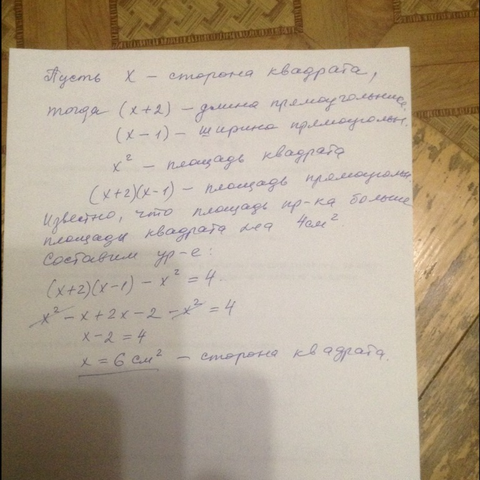 Пусть x – сторона квадрата,
тогда (x+2) – длина прямоугольника
(x-1) – ширина прямоугольн.
x² – площадь квадрата
(x+2)(x-1) – площадь прямоугольн
Известно, что площадь пр-ка больше
площади квадрата на 4см²
Составим ур-е:
(x+2)(x-1) - x² = 4.
x² - x + 2x - 2 - x² = 4
x-2 = 4
x = 6 см² – сторона квадрата.